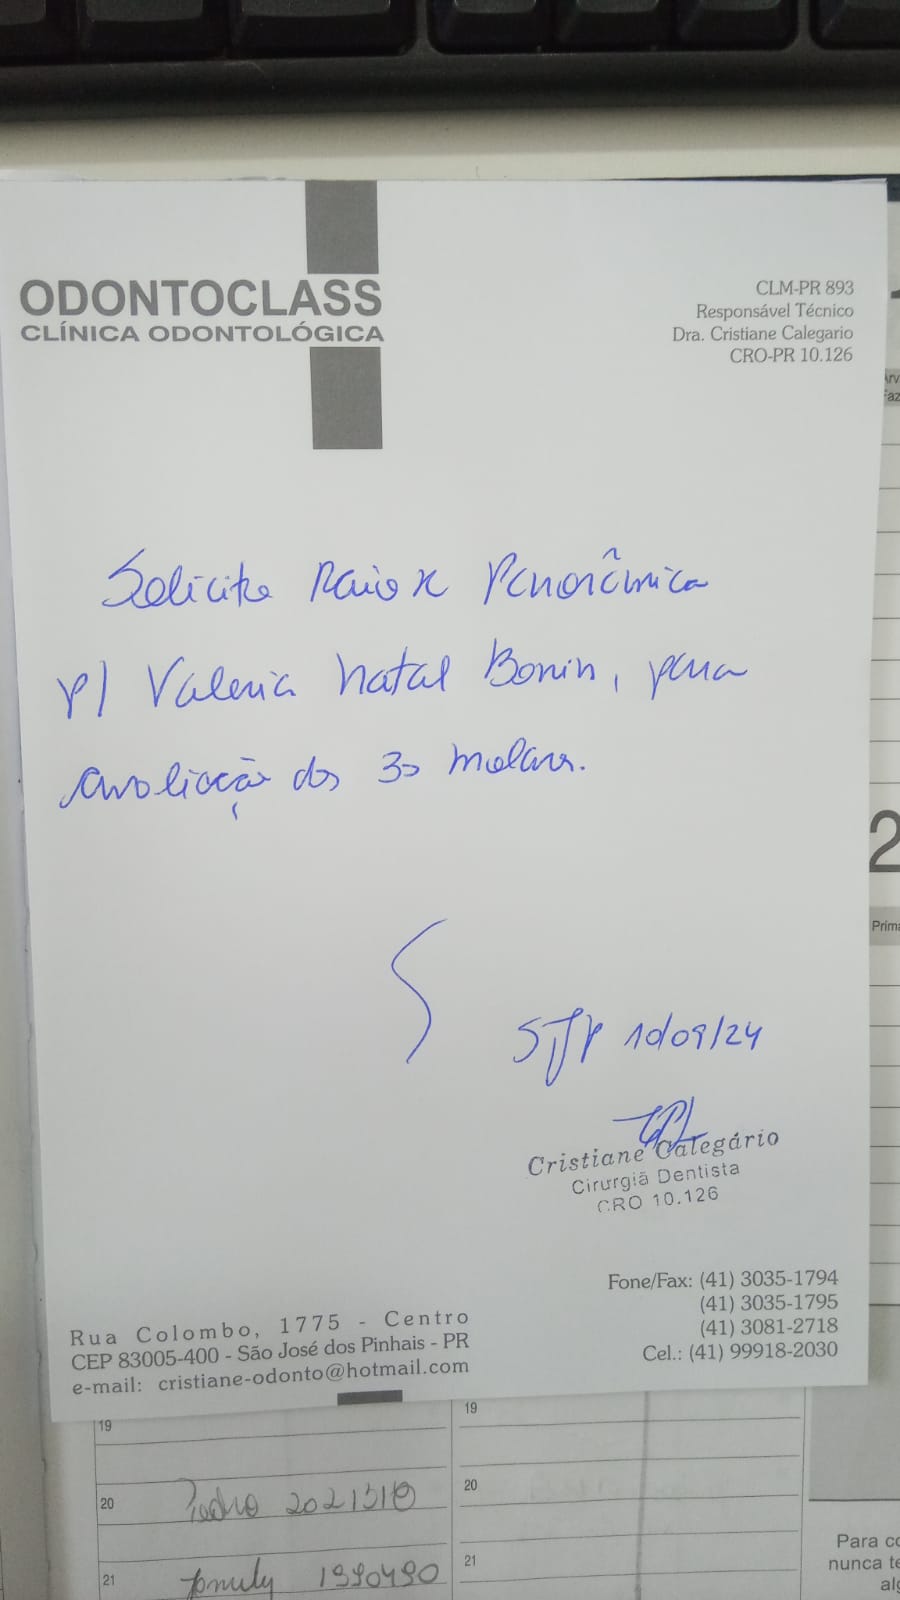 ODONTOCLASS
CLÍNICA ODONTOLÓGICA
CLM-PR 893
Responsável Técnico
Dra. Cristiane Calegario
CRO-PR 10.126
Solicito Raio x Panorâmica
p/ Valeria Natal Bonin, para
avaliação dos 3os molares.
SJP 10/09/24
Cristiane Calegário
Cirurgiã Dentista
CRO 10.126
Fone/Fax: (41) 3035-1794
(41) 3035-1795
(41) 3081-2718
Cel.: (41) 99918-2030
Rua Colombo, 1775 - Centro
CEP 83005-400 - São José dos Pinhais - PR
e-mail: cristiane-odonto@hotmail.com
19
19
20 Pedro
20
21
21
2
Para
nunca